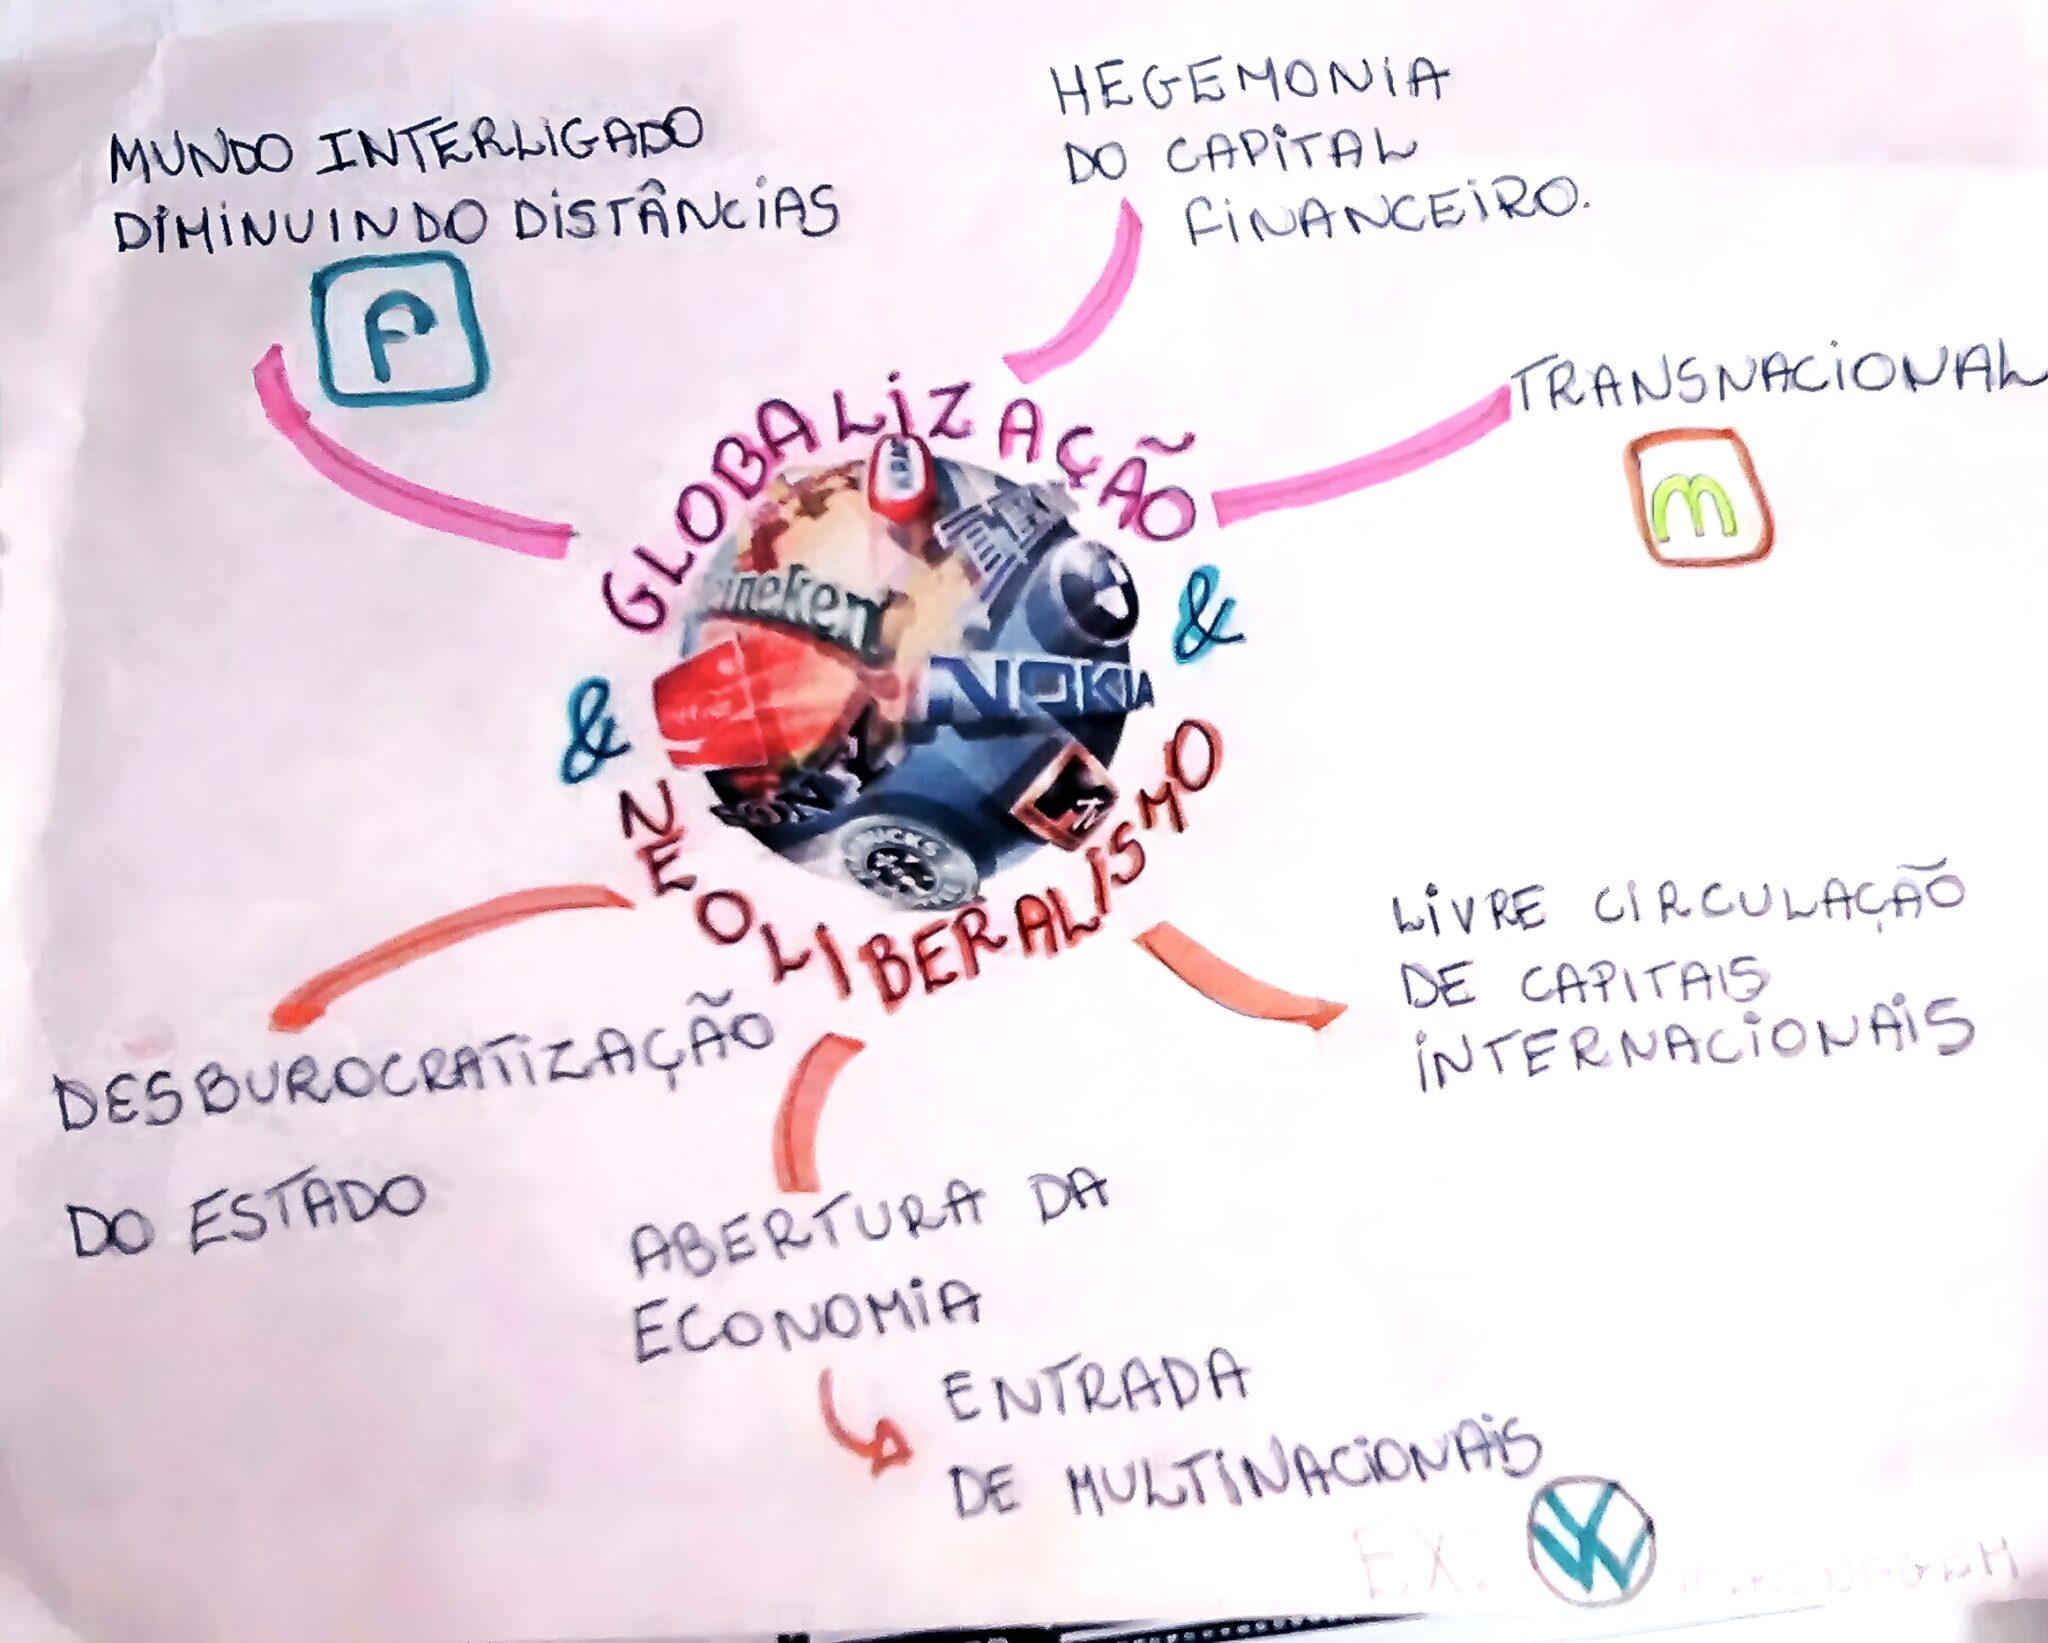 MUNDO INTERLIGADO
DIMINUINDO DISTÂNCIAS
F
HEGEMONIA
DO CAPITAL
FINANCEIRO.
TRANSNACIONAL
M
GLOBALIZAÇÃO
&
&
NEOLIBERALISMO
NOKIA
SONY
DESBUROCRATIZAÇÃO
DO ESTADO
ABERTURA DA
ECONOMIA
ENTRADA
DE MULTINACIONAIS
EX: VW
LIVRE CIRCULAÇÃO
DE CAPITAIS
INTERNACIONAIS